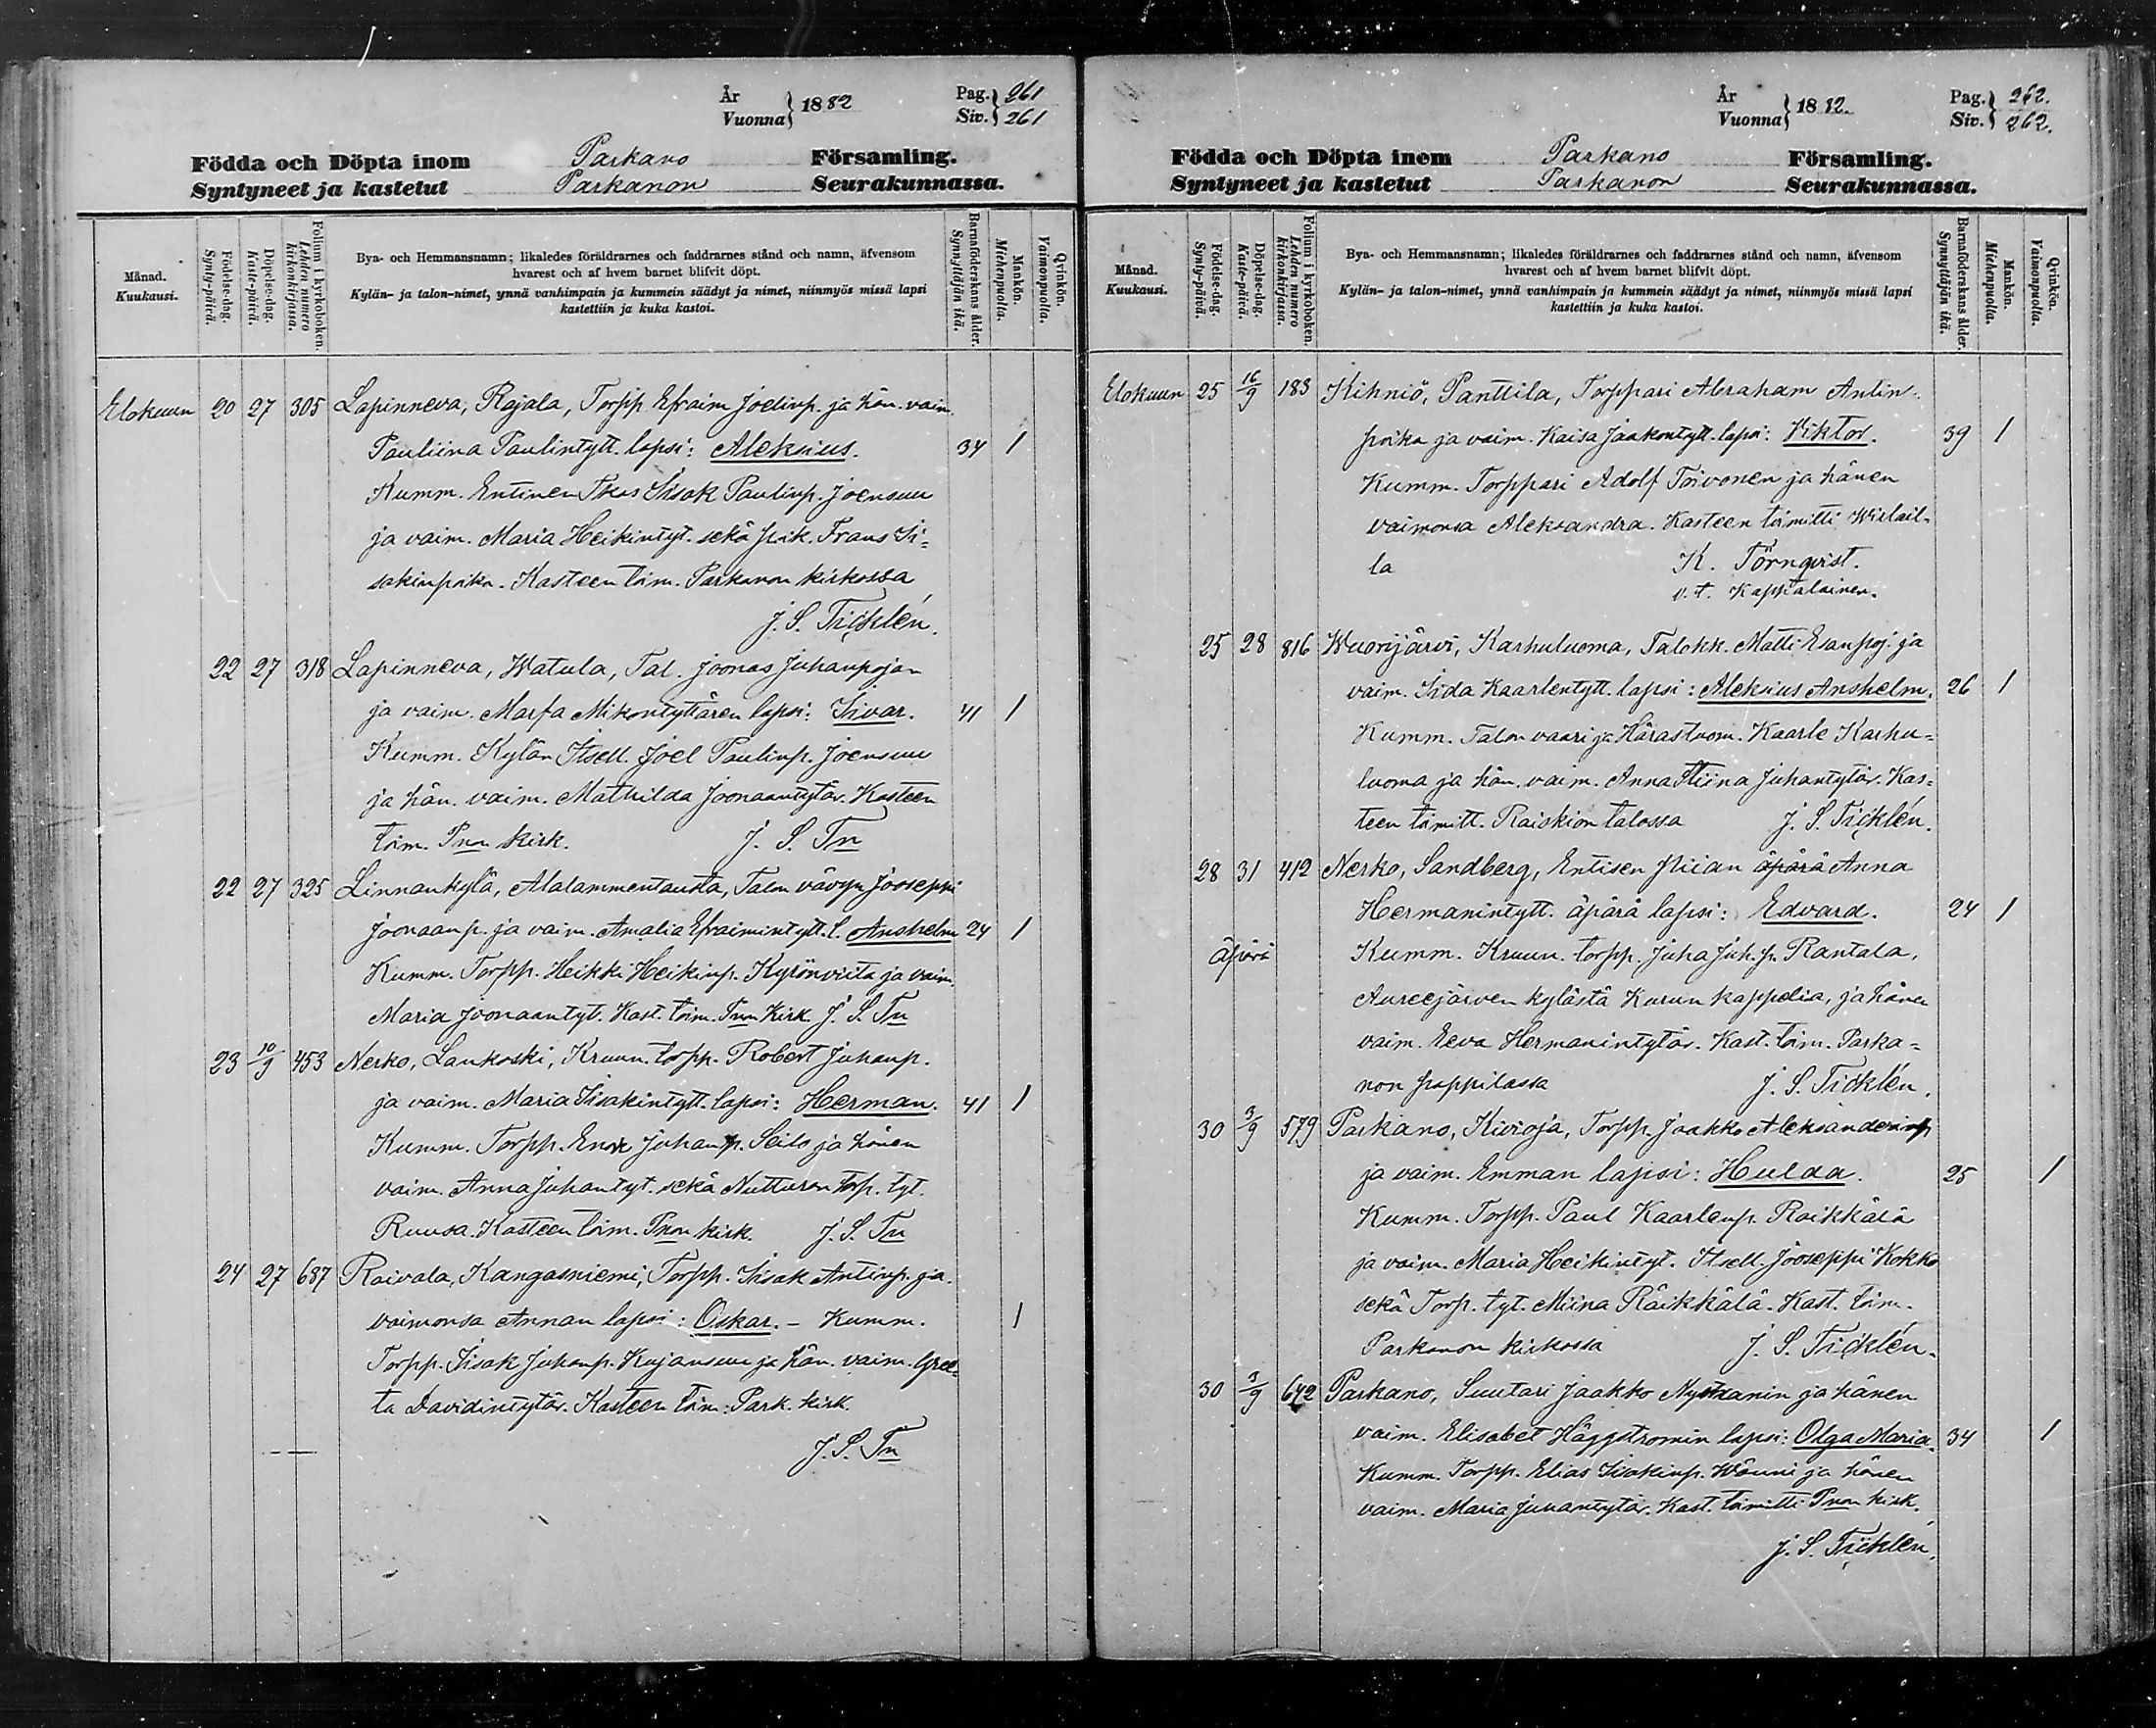 År
Vuonna
1882
Pag. 261
Siv. 261
Födda och Döpta inom Parkano Församling.
Syntyneet ja kastetut Parkanon Seurakunnassa.
Månad.
Kuukausi.
Födelse-dag.
Synty-päivä.
Döpelse-dag.
Kaste-päivä.
Folium i kyrkoboken.
Lehden numero kirkonkirjassa.
Bya- och Hemmansnamn; likaledes föräldrarnes och faddrarnes stånd och namn, äfvensom
hvarest och af hvem barnet blifvit döpt.
Kylän- ja talon-nimet, ynnä vanhimpain ja kummein säädyt ja nimet, niinmyös missä lapsi
kastettiin ja kuka kastoi.
Barnaföderskans ålder.
Synnyttäjän ikä.
Mankön.
Miehenpuolta.
Qvinkön.
Vaimonpuolta.
Elokuun 20 27 305 Lapinneva, Rajala, Torpp. Efraim Joelinp. ja hän. vaim.
Pauliina Paulintytt. lapsi: Aleksius. 34 1
Kumm. Entinen Iisak Paulinp. Joensuu
ja vaim. Maria Heikintyt. sekä poik. Frans Ii=
sakinpoika. Kasteen toim. Parkanon kirkossa
J. S. Ticklén.
22 27 318 Lapinneva, Watula, Tal. Joonas Juhanpojan
ja vaim. Marfa Mikontyttären lapsi: Iivar. 41 1
Kumm. Kylän Itsell. Joel Paulinp. Joensuu
ja hän. vaim. Mathilda Joonaantytär. Kasteen
toim. Pnon kirk. J. S. Tn
22 27 325 Linnankylä, Alalammentausta, Talon vävyn Jooseppi
Joonaanp. ja vaim. Amalia Efraimintytt. l. Anshelm 24 1
Kumm. Torpp. Heikki Heikinp. Kyrönviita ja vaim.
Maria Joonaantyt. Kast. toim. Pnon Kirk. J. S. Tn
23 10/9 453 Nerko, Lankoski, Kruun. torpp. Robert Juhanp.
ja vaim. Maria Iisakintytt. lapsi: Herman. 41 1
Kumm. Torpp. Enok Juhanp. Seilo ja hänen
vaim. Anna Juhantyt. sekä Nutturan torp. tyt.
Ruusa. Kasteen toim. Pnon kirk. J. S. Tn
24 27 687 Raivala, Kangasniemi, Torpp. Iisak Antinp. ja
vaimonsa Annan lapsi: Oskar. – Kumm. 1
Torpp. Iisak Juhanp. Kujansuu ja hän. vaim. Gree=
ta Davidintytär. Kasteen toim: Park. kirk.
J. S. Tn
År
Vuonna
1882.
Pag. 262.
Siv. 262.
Födda och Döpta inom Parkano Församling.
Syntyneet ja kastetut Parkanon Seurakunnassa.
Månad.
Kuukausi.
Födelse-dag.
Synty-päivä.
Döpelse-dag.
Kaste-päivä.
Folium i kyrkoboken.
Lehden numero kirkonkirjassa.
Bya- och Hemmansnamn; likaledes föräldrarnes och faddrarnes stånd och namn, äfvensom
hvarest och af hvem barnet blifvit döpt.
Kylän- ja talon-nimet, ynnä vanhimpain ja kummein säädyt ja nimet, niinmyös missä lapsi
kastettiin ja kuka kastoi.
Barnaföderskans ålder.
Synnyttäjän ikä.
Mankön.
Miehenpuolta.
Qvinkön.
Vaimonpuolta.
Elokuun 25 16/9 183 Kihniö, Panttila, Torppari Abraham Antin-
poika ja vaim. Kaisa Jaakontytt. lapsi: Viktor. 39 1
Kumm. Torppari Adolf Toivonen ja hänen
vaimonsa Aleksandra. Kasteen toimitti
la K. Törnqvist.
v. t. Kappalainen.
25 28 816 Wuorijärvi, Karhuluoma, Talokk. Matti Esanpoj. ja
vaim. Iida Kaarlentytt. lapsi: Aleksius Anshelm. 26 1
Kumm. Talon vaari ja Härastuom. Kaarle Karhu=
luoma ja hän. vaim. Anna Stiina Juhantytär. Kas=
teen toimitt. Raiskion talossa J. S. Ticklén.
28 31 412 Nerko, Sandberg, Entisen piian äpärä Anna
Hermanintytt. äpärä lapsi: Edvard. 24 1
äpärä Kumm. Kruun. torpp. Juha Juh. p. Rantala,
Aureejärven kylästä Kurun kappelia, ja hänen
vaim. Eeva Hermanintytär. Kast. toim. Parka=
non pappilassa J. S. Ticklén.
30 3/9 579 Parkano, Kivioja, Torpp. Jaakko Aleksanderinp.
ja vaim. Emman lapsi: Hulda. 25 1
Kumm. Torpp. Paul Kaarlenp. Raikkälä
ja vaim. Maria Heikintyt. Itsell. Jooseppi Kokko
sekä Torp. tyt. Miina Räikkälä. Kast. toim.
Parkanon kirkossa J. S. Ticklén.
30 3/9 642 Parkano, Suutari Jaakko Nystranin ja hänen
vaim. Elisabet Häggströmin lapsi: Olga Maria. 34 1
Kumm. Torpp. Elias Iisakinp. Wänni ja hänen
vaim. Maria Juhantytär. Kast. toimitti Pnon kirk.
J. S. Ticklén.